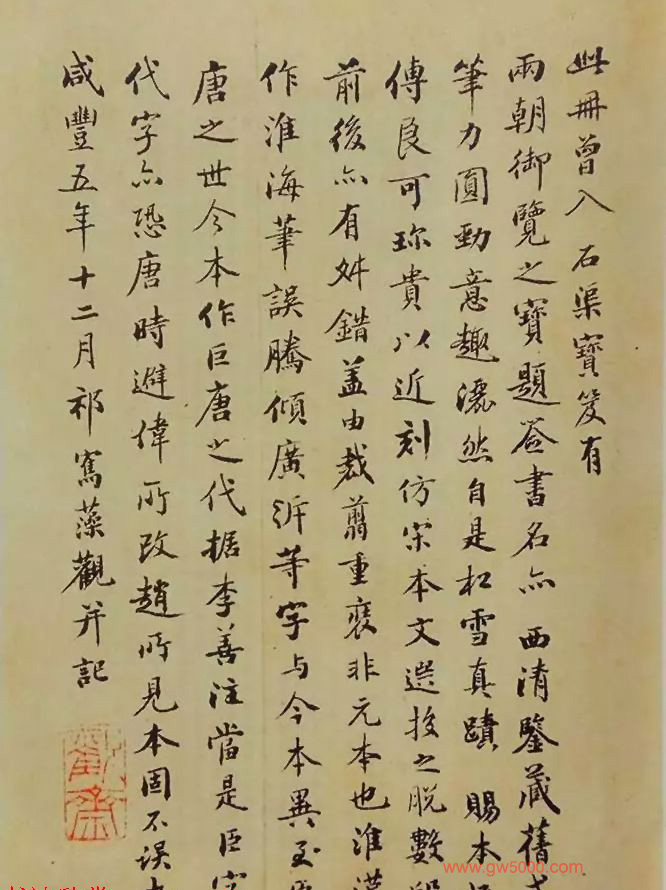 此冊曾入 石渠寶笈有
兩朝御覽之寶題簽書名亦 西清鑒藏舊
筆力圓勁意趣灑然自是松雪真蹟 賜本
傳良可珍貴以近刻仿宋本文選校之脫數
前後亦有舛錯蓋由裁翦重裝非元本也淮漢
作淮海華誤騰傾廣泝等字与今本異至
唐之世今本作巨唐之代据李善注當是臣字
代字亦恐唐時避偉所改趙所見本固不误
咸豐五年十二月祁寯藻觀并記
www.gw5000.com